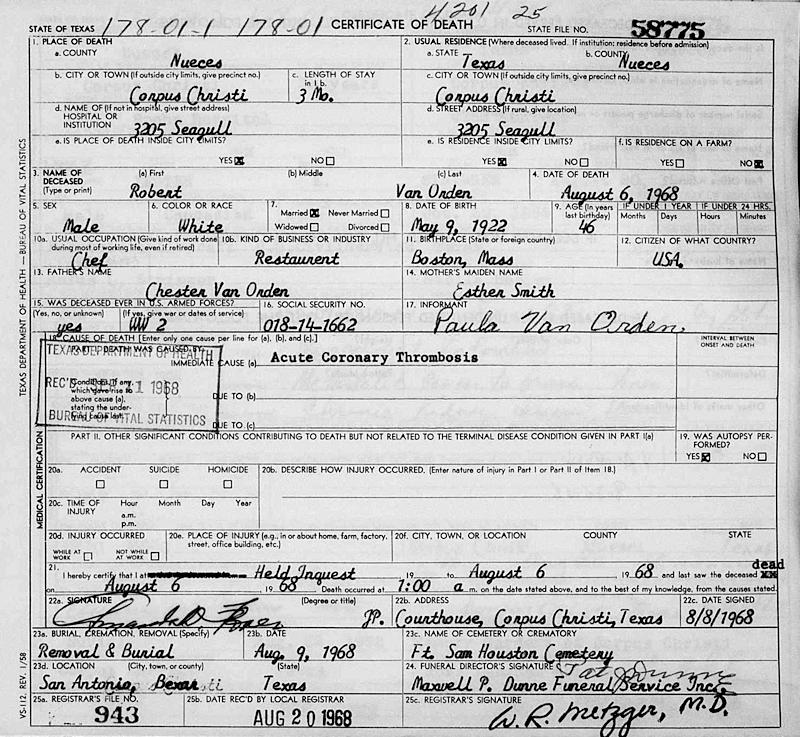 4201 25
STATE OF TEXAS 178-01-1 178-01 CERTIFICATE OF DEATH STATE FILE NO. 58775
1. PLACE OF DEATH
a. COUNTY
Nueces
2. USUAL RESIDENCE (Where deceased lived. If institution: residence before admission)
a. STATE
Texas
b. COUNTY
Nueces
b. CITY OR TOWN (If outside city limits, give precinct no.)
Corpus Christi
c. LENGTH OF STAY in 1 b.
3 Mo.
c. CITY OR TOWN (If outside city limits, give precinct no.)
Corpus Christi
d. NAME OF (If not in hospital, give street address)
HOSPITAL OR
INSTITUTION
3205 Seagull
d. STREET ADDRESS (If rural, give location)
3205 Seagull
e. IS PLACE OF DEATH INSIDE CITY LIMITS?
YES NO
e. IS RESIDENCE INSIDE CITY LIMITS?
YES NO
f. IS RESIDENCE ON A FARM?
YES NO
3. NAME OF DECEASED
(Type or print)
(a) First
Robert
(b) Middle
(c) Last
Van Orden
4. DATE OF DEATH
August 6, 1968
5. SEX
Male
6. COLOR OR RACE
White
7.
Married Never Married
Widowed Divorced
8. DATE OF BIRTH
May 9, 1922
9. AGE (In years last birthday)
46
IF UNDER 1 YEAR
Months Days
IF UNDER 24 HRS.
Hours Minutes
10a. USUAL OCCUPATION (Give kind of work done during most of working life, even if retired)
Chef
10b. KIND OF BUSINESS OR INDUSTRY
Restaurent
11. BIRTHPLACE (State or foreign country)
Boston, Mass
12. CITIZEN OF WHAT COUNTRY?
USA.
13. FATHER'S NAME
Chester Van Orden
14. MOTHER'S MAIDEN NAME
Esther Smith
15. WAS DECEASED EVER IN U.S. ARMED FORCES?
(Yes, no, or unknown)
yes
(If yes, give war or dates of service)
WW 2
16. SOCIAL SECURITY NO.
018-14-1662
17. INFORMANT
Paula Van Orden
18. CAUSE OF DEATH [Enter only one cause per line for (a), (b), and (c).]
PART I. DEATH WAS CAUSED BY:
IMMEDIATE CAUSE (a) Acute Coronary Thrombosis
INTERVAL BETWEEN ONSET AND DEATH
Conditions, if any
which gave rise to
above cause (a),
stating the under-
lying cause last.
DUE TO (b)
DUE TO (c)
TEXAS DEPARTMENT OF HEALTH
REC'D 1 1968
BUREAU OF VITAL STATISTICS
PART II. OTHER SIGNIFICANT CONDITIONS CONTRIBUTING TO DEATH BUT NOT RELATED TO THE TERMINAL DISEASE CONDITION GIVEN IN PART I(a)
19. WAS AUTOPSY PERFORMED?
YES NO
20a. ACCIDENT SUICIDE HOMICIDE
20b. DESCRIBE HOW INJURY OCCURRED. (Enter nature of injury in Part I or Part II of Item 18.)
20c. TIME OF INJURY
Hour Month Day Year
a.m.
p.m.
20d. INJURY OCCURRED
WHILE AT WORK NOT WHILE AT WORK
20e. PLACE OF INJURY (e.g., in or about home, farm, factory, street, office building, etc.)
20f. CITY, TOWN, OR LOCATION COUNTY STATE
21.
I hereby certify that I Held Inquest 19 to August 6 1968 and last saw the deceased dead
on August 6 1968 Death occurred at 1:00 a m. on the date stated above, and to the best of my knowledge, from the causes stated.
22a. SIGNATURE
(Degree or title)
JP.
22b. ADDRESS
Courthouse, Corpus Christi, Texas
22c. DATE SIGNED
8/8/1968
23a. BURIAL, CREMATION, REMOVAL (Specify)
Removal & Burial
23b. DATE
Aug. 9, 1968
23c. NAME OF CEMETERY OR CREMATORY
Ft. Sam Houston Cemetery
23d. LOCATION (City, town, or county) (State)
San Antonio, Bexar Texas
24. FUNERAL DIRECTOR'S SIGNATURE
Pat J Dunne
Maxwell P. Dunne Funeral Service Inc.
25a. REGISTRAR'S FILE NO.
943
25b. DATE REC'D BY LOCAL REGISTRAR
AUG 20 1968
25c. REGISTRAR'S SIGNATURE
W. R. Metzger, M.D.
TEXAS DEPARTMENT OF HEALTH — BUREAU OF VITAL STATISTICS
MEDICAL CERTIFICATION
VS-112, REV. 1/58